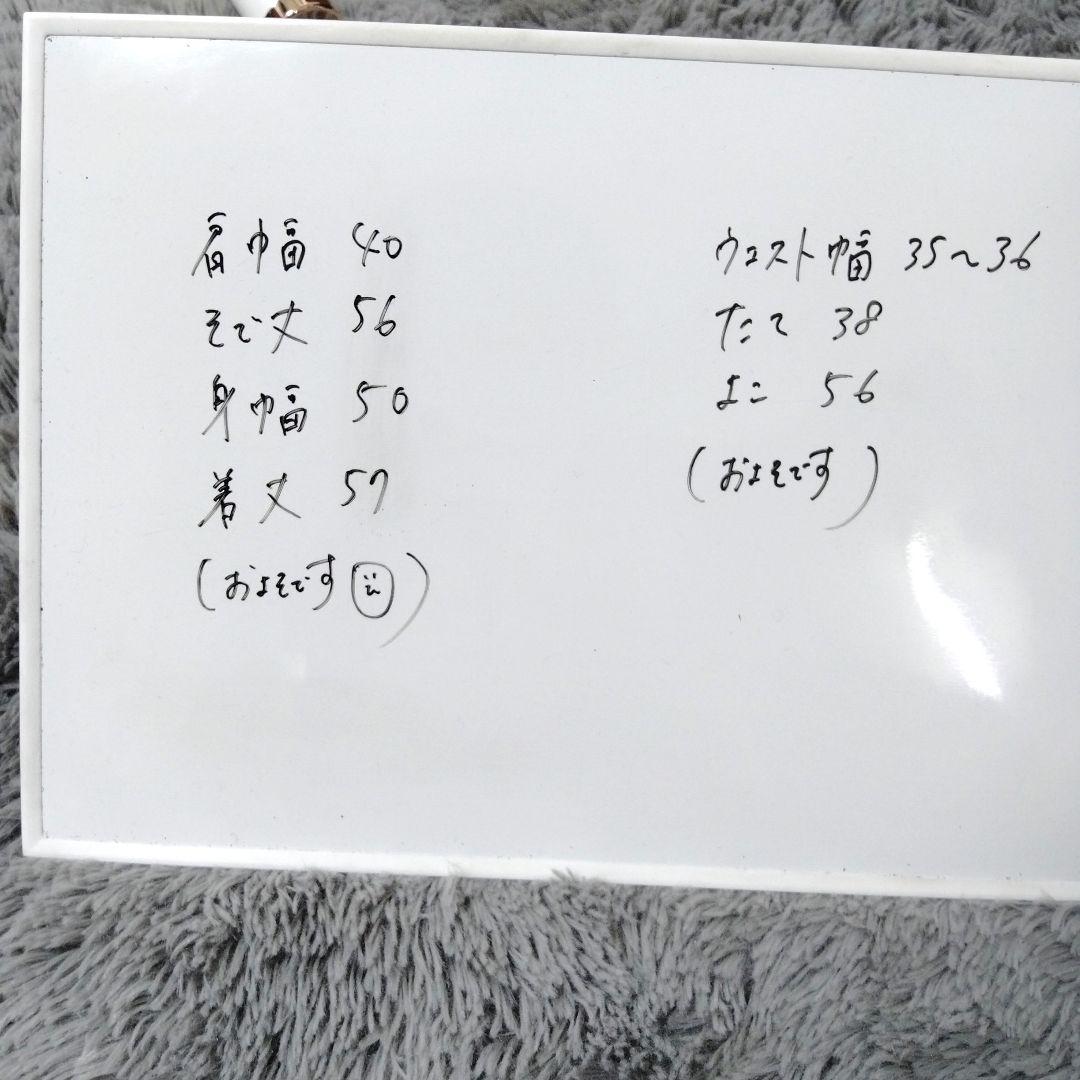 肩幅 40
そで丈 56
身幅 50
着丈 57
(およそです)
ウェスト幅 35～36
たて 38
よこ 56
(およそです)